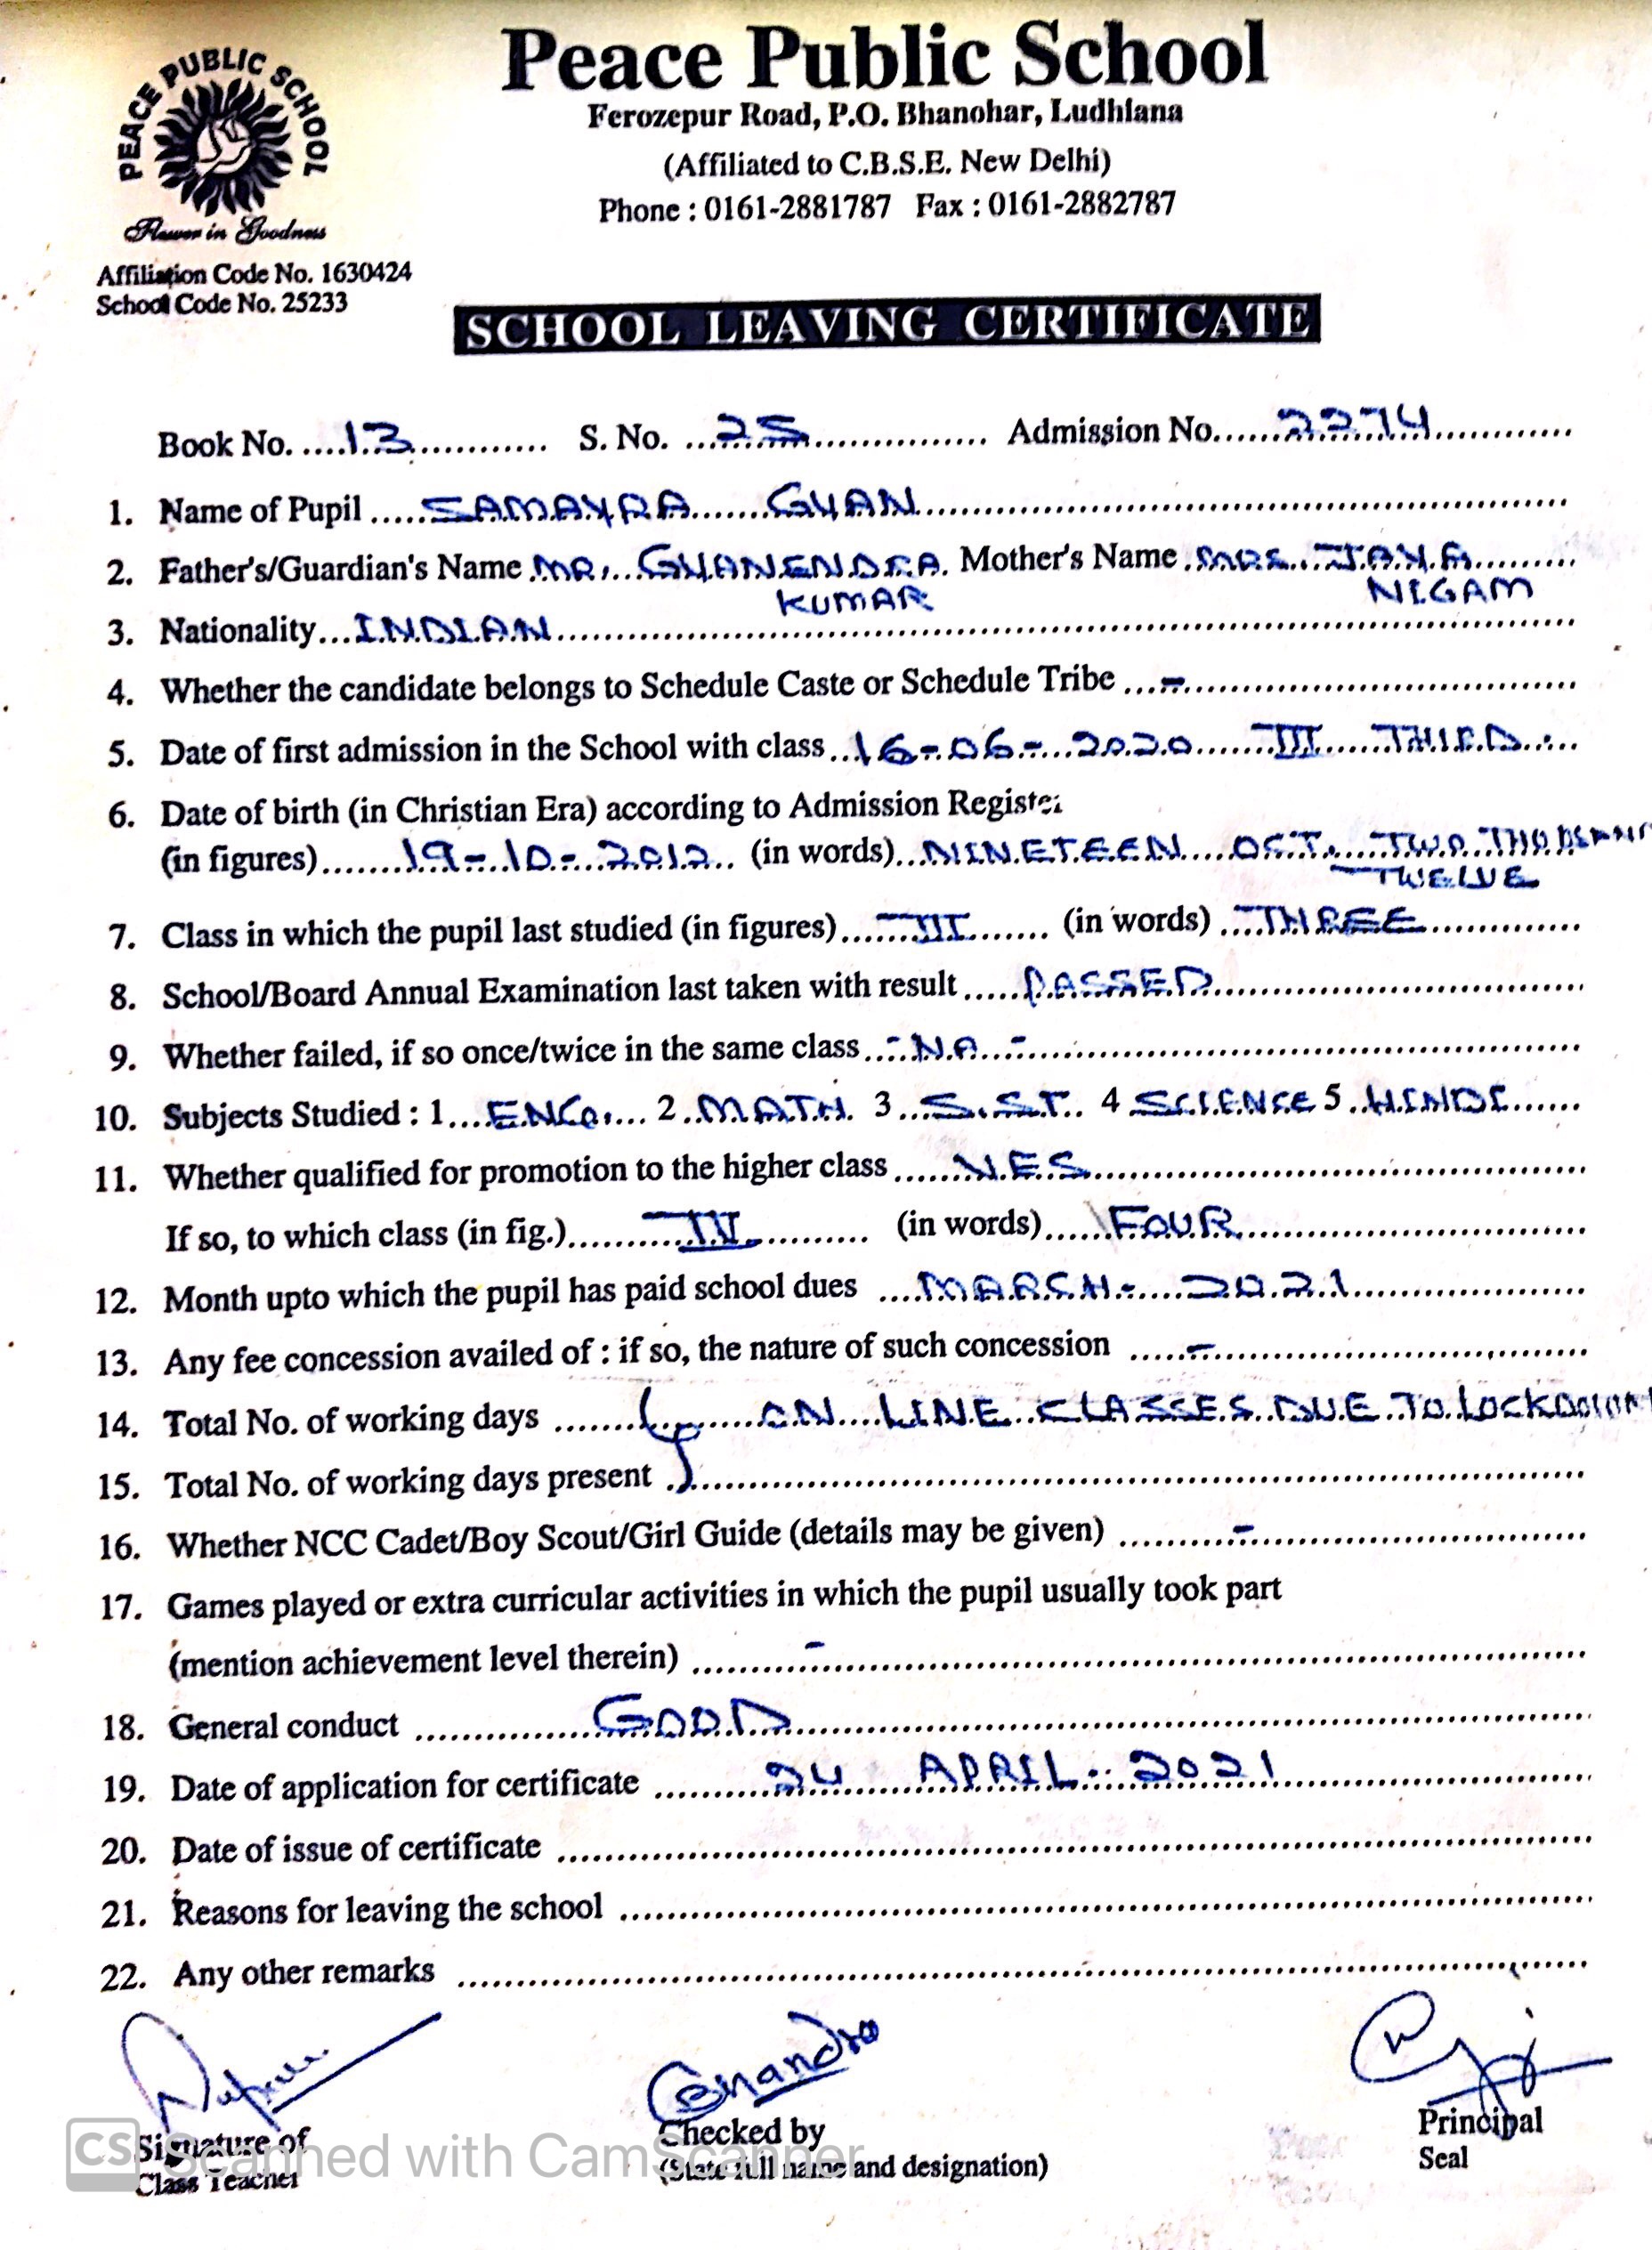 PEACE PUBLIC SCHOOL
Flower in Goodness
Peace Public School
Ferozepur Road, P.O. Bhanohar, Ludhiana
(Affiliated to C.B.S.E. New Delhi)
Phone : 0161-2881787 Fax : 0161-2882787
Affiliation Code No. 1630424
School Code No. 25233
SCHOOL LEAVING CERTIFICATE
Book No. 13 S. No. 25 Admission No. 2274
1. Name of Pupil SAMAYRA GYAN
2. Father's/Guardian's Name MR. GYANENDRA Mother's Name MRS. JAYA
KUMAR NIGAM
3. Nationality INDIAN
4. Whether the candidate belongs to Schedule Caste or Schedule Tribe -
5. Date of first admission in the School with class 16-06-2020 III THIRD
6. Date of birth (in Christian Era) according to Admission Register
(in figures) 19-10-2012 (in words) NINETEEN OCT. TWO THOUSAND
TWELVE
7. Class in which the pupil last studied (in figures) III (in words) THREE
8. School/Board Annual Examination last taken with result PASSED
9. Whether failed, if so once/twice in the same class -N.A-
10. Subjects Studied : 1 ENG. 2 MATH. 3 S.ST. 4 SCIENCE 5 HINDI
11. Whether qualified for promotion to the higher class YES
If so, to which class (in fig.) IV (in words) FOUR
12. Month upto which the pupil has paid school dues MARCH-2021
13. Any fee concession availed of : if so, the nature of such concession -
14. Total No. of working days ON LINE CLASSES DUE TO LOCKDOWN
15. Total No. of working days present
16. Whether NCC Cadet/Boy Scout/Girl Guide (details may be given) -
17. Games played or extra curricular activities in which the pupil usually took part
(mention achievement level therein) -
18. General conduct GOOD
19. Date of application for certificate 24 APRIL-2021
20. Date of issue of certificate
21. Reasons for leaving the school
22. Any other remarks
Chandra
Signature of
Class Teacher
Checked by
(State full name and designation)
Principal
Seal
CS Scanned with CamScanner